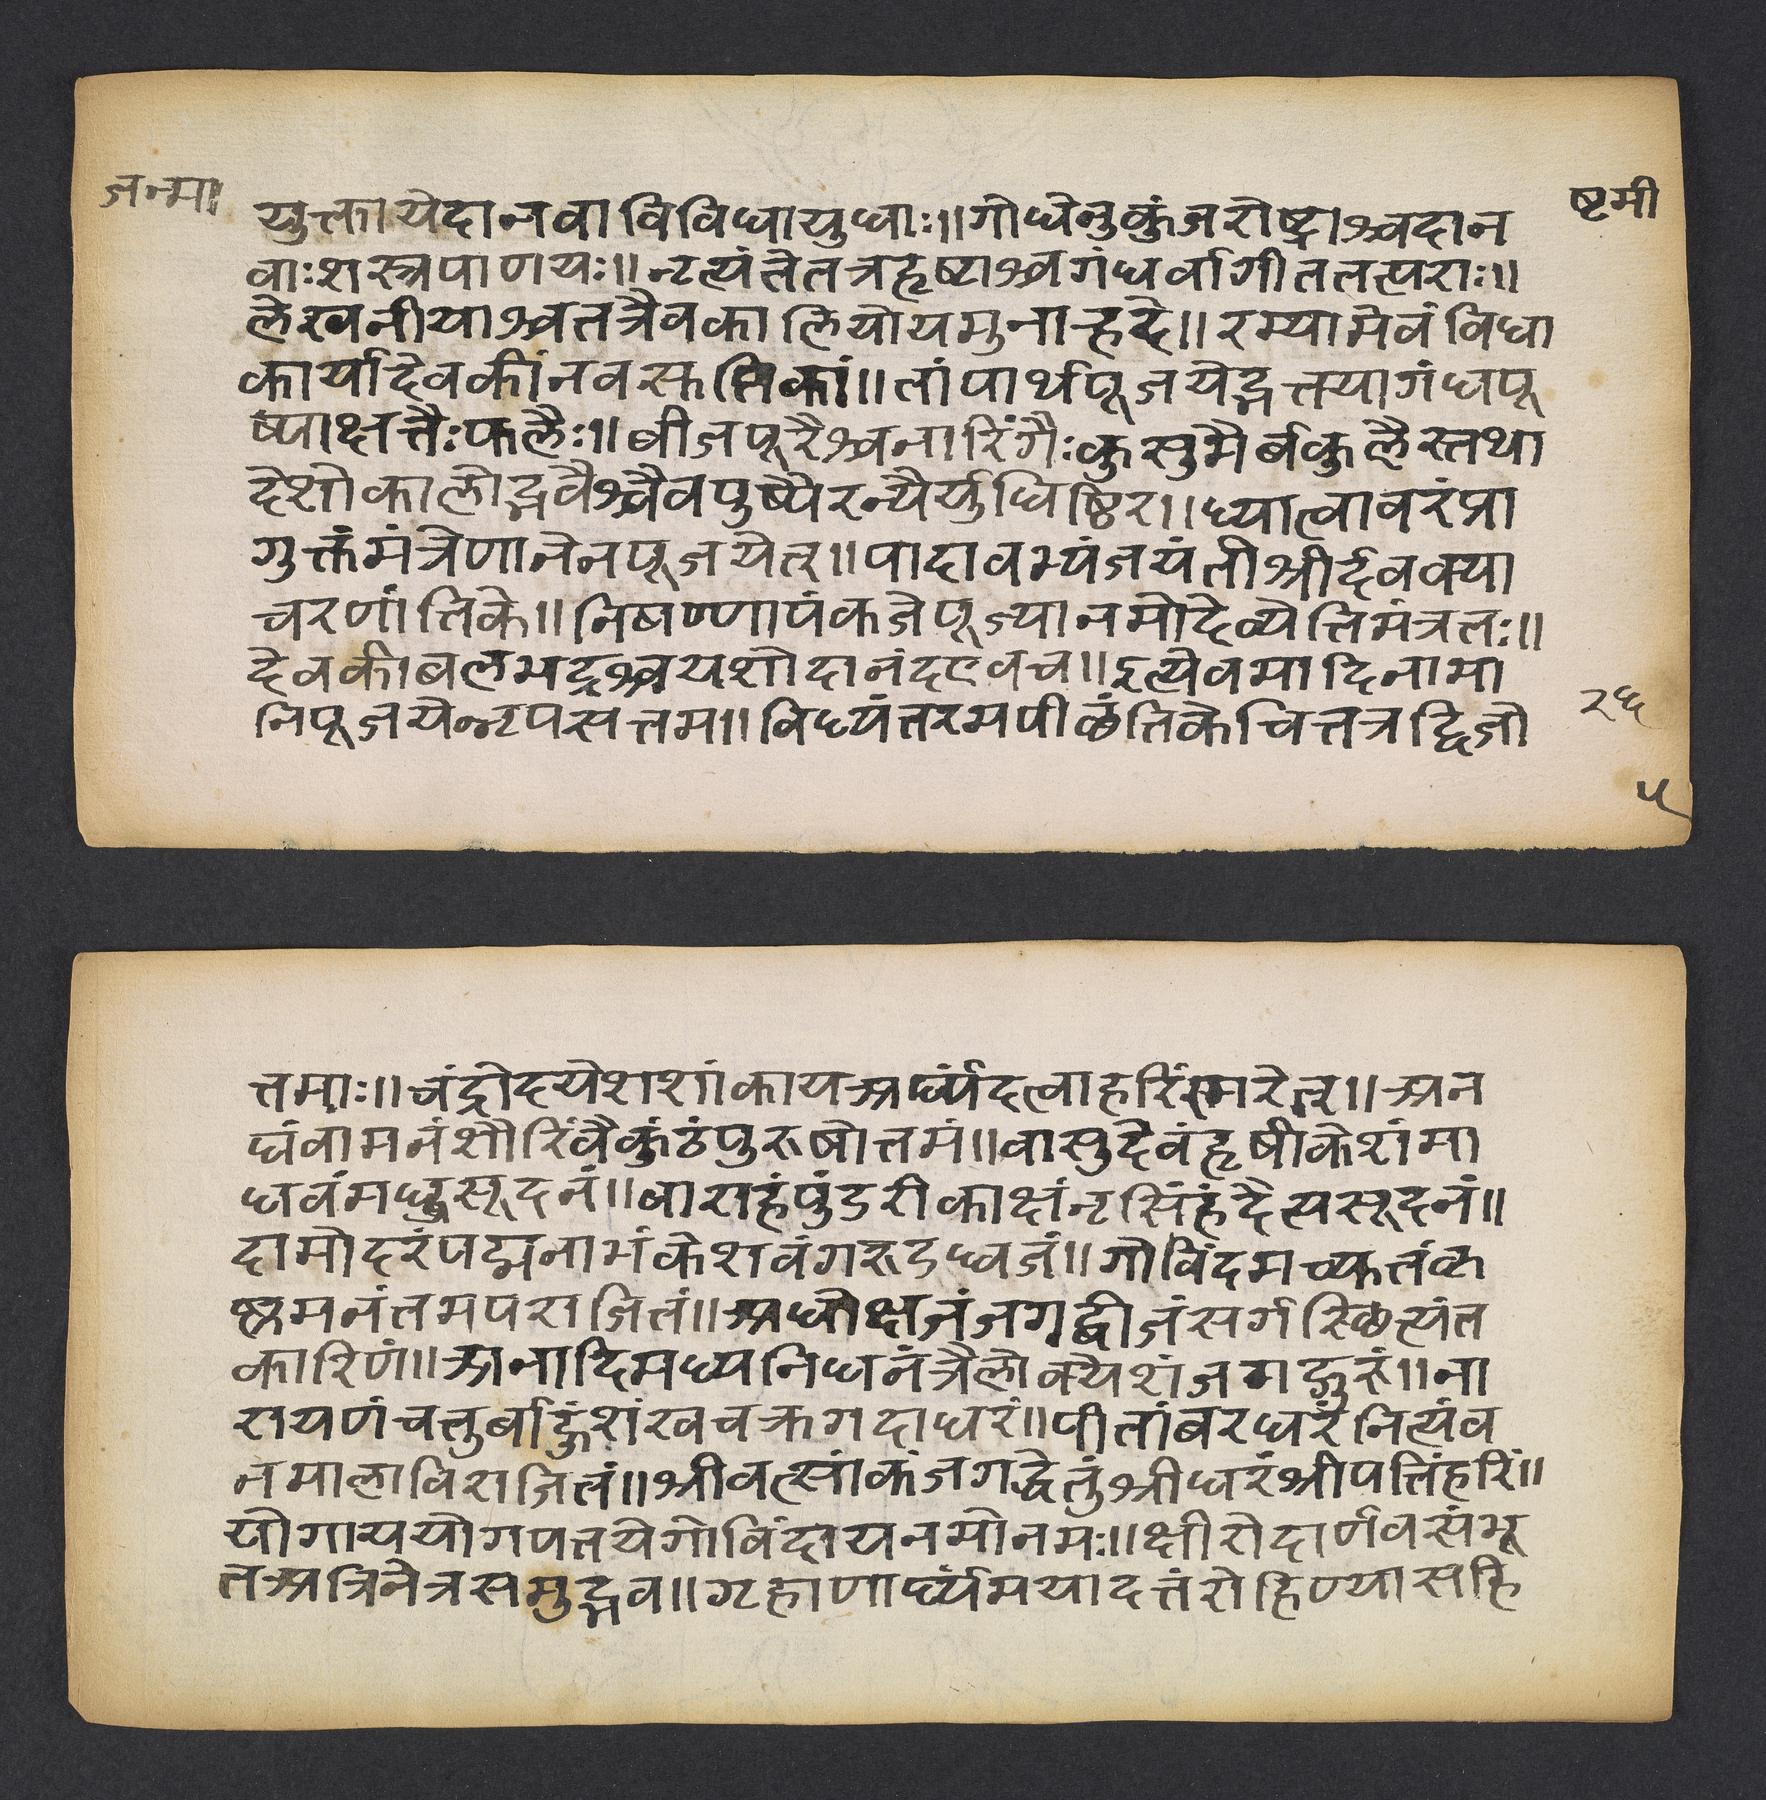 जन्मा
ष्टमी
युक्तायेदानवाविविधायुधाः॥गोधेनुकुंजरोष्ट्राश्वदान
वाःशस्त्रपाणयः॥नृत्यंतेतत्रहृष्टाश्वगंधर्वागीततत्पराः॥
लेखनीयाश्वतत्रैवकालियोयमुनाह्रदे॥रम्यामेवंविधा
कार्यादेवकींनवसूतिकां॥तांपार्थपूजयेद्भत्तयागंधपू
ष्पाक्षतैःफलैः॥बीजपूरैश्वनारिंगैःकुसुमैर्बकुलैस्तथा
देशोकालोद्भवैश्वैवपुष्पैरन्यैर्युधिष्ठिर॥ध्यात्वावरंप्रा
गुक्तंमंत्रेणानेनपूजयेत्॥पादावभ्यंजयंतीश्रीर्देवक्या
चरणांतिके॥निषण्णापंकजेपूज्यानमोदेव्येतिमंत्रतः॥
देवकीबलभद्रश्वयशोदानंदएवच॥इत्येवमादिनामा
निपूजयेन्नृपसत्तम॥विध्यंतरमपीछंतिकेचित्तत्रद्विजो
२६
५
त्तमाः॥चंद्रोदयेशशांकायअर्घ्यंदत्वाहरिंस्मरेत्॥अन
घंवामनंशौरिंवैकुंठंपुरुषोत्तमं॥वासुदेवंहृषीकेशंमा
धवंमधुसूदनं॥वाराहंपुंडरीकाक्षंनृसिंहंदैत्यसूदनं॥
दामोदरंपद्मनाभंकेशवंगरुडध्वजं॥गोविंदमच्युतंकृ
ष्णमनंतमपराजितं॥अधोक्षजंजगद्वीजंसर्गस्छित्यंत
कारिणं॥अनादिमध्यनिधनंत्रैलोक्येशंजगद्गुरुं॥ना
रायणंचतुर्बाहुंशंखचक्रगदाधरं॥पीतांबरधरंनित्यंव
नमालाविराजितं॥श्रीवत्सांकंजगद्धेतुंश्रीधरंश्रीपतिंहरिं॥
योगाययोगपतयेगोविंदायनमोनमः॥क्षीरोदार्णवसंभू
तअत्रिनेत्रसमुद्भव॥गृहाणार्घ्यंमयादत्तंरोहिण्यासहि